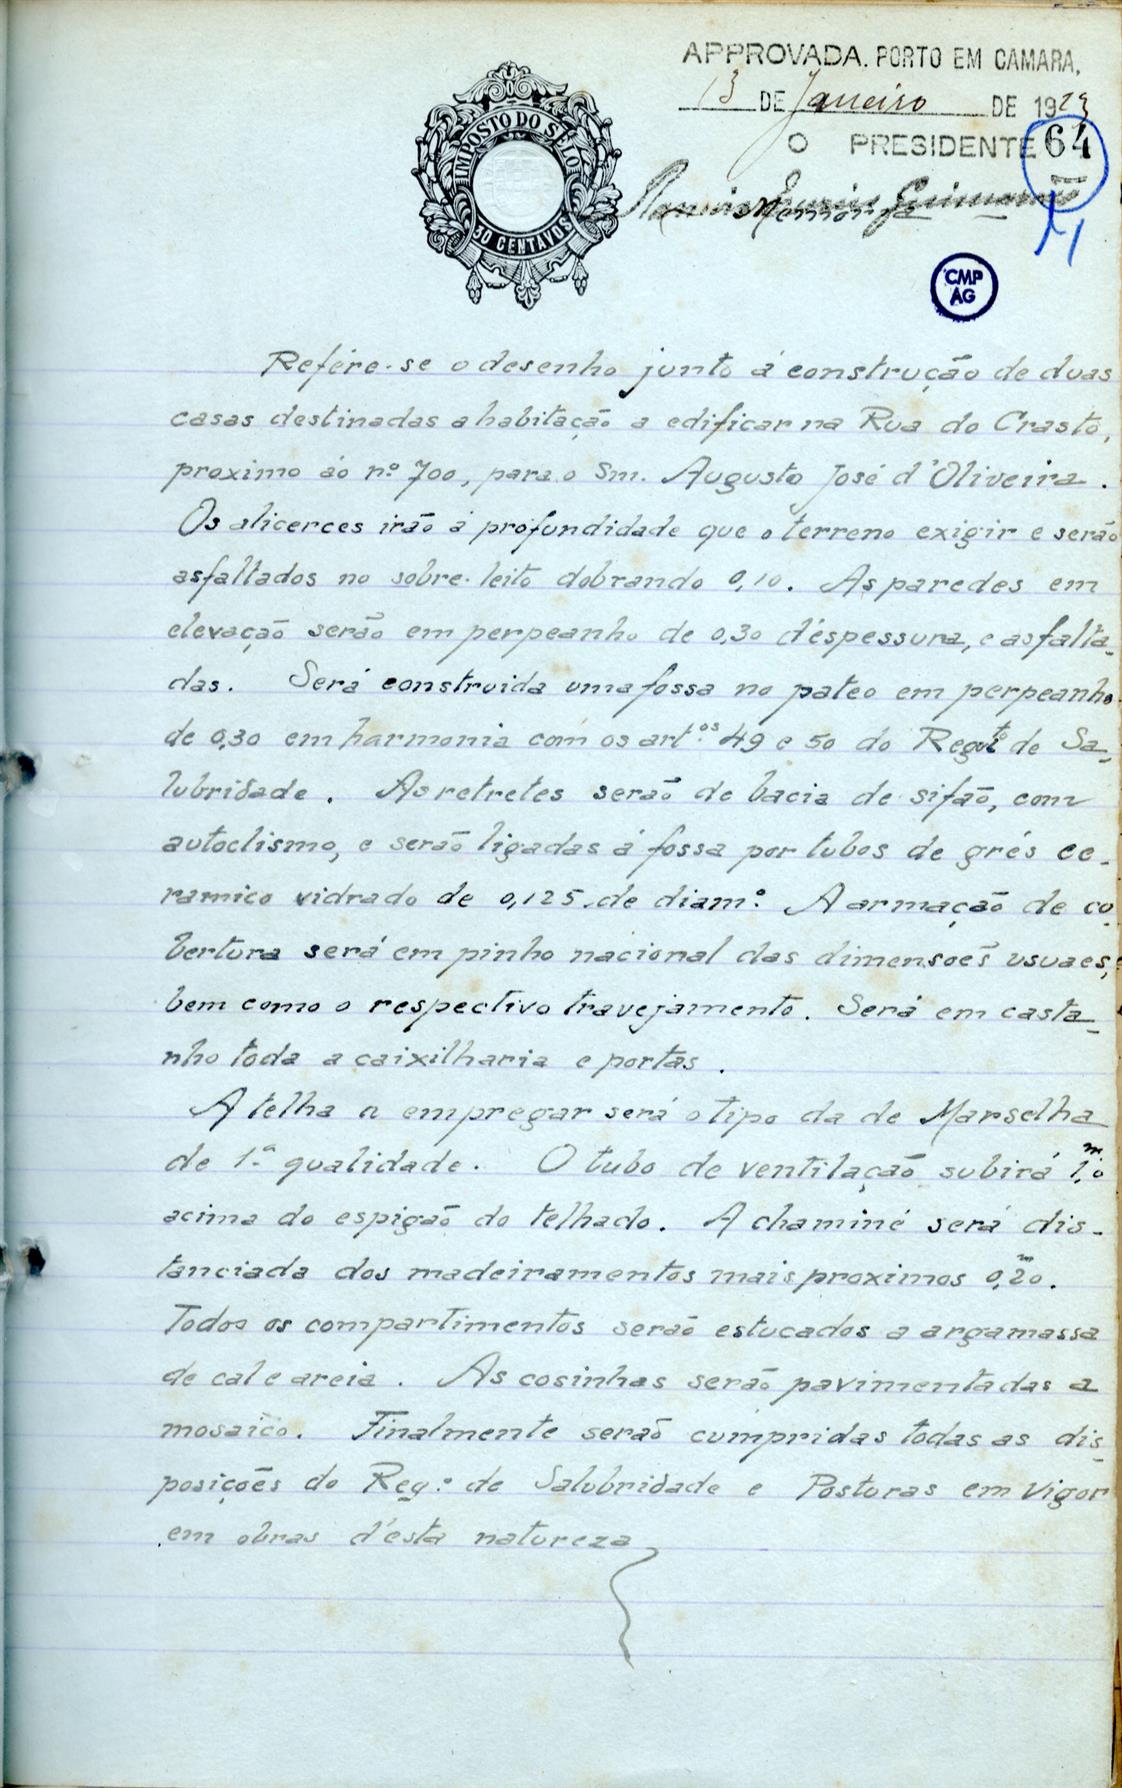 APPROVADA. PORTO EM CAMARA,
13 DE Janeiro DE 1923
O PRESIDENTE
64
IMPOSTO DO SELO
30 CENTAVOS
CMP
AG
Refére-se o desenho junto á construção de duas
casas destinadas a habitação a edificar na Rua do Crasto,
proximo áo nº 700, para o Snr. Augusto José d'Oliveira.
Os alicerces irão á profundidade que o terreno exigir e serão
asfaltados no sobre-leito dobrando 0,10. As paredes em
elevação serão em perpeanho de 0,30 d'espessura, e asfalta-
das. Será construida uma fossa no pateo em perpeanho
de 0,30 em harmonia com os art.os 49 e 50 do Regto de Sa-
lubridade. As retretes serão de bacia de sifão, com
autoclismo, e serão ligadas á fossa por tubos de grés ce-
ramico vidrado de 0,125 de diamº. A armação de co-
bertura será em pinho nacional das dimensões usuaes,
bem como o respectivo travejamento. Será em casta-
nho toda a caixilharia e portas.
A telha a empregar será o tipo da de Marselha
de 1.ª qualidade. O tubo de ventilação subirá 1,m0
acima do espigão do telhado. A chaminé será dis-
tanciada dos madeiramentos mais proximos 0,m20.
Todos os compartimentos serão estucados a argamassa
de cal e areia. As cosinhas serão pavimentadas a
mosaico. Finalmente serão cumpridas todas as dis-
posições do Reg.º de Salubridade e Posturas em vigor
em obras d'esta natureza